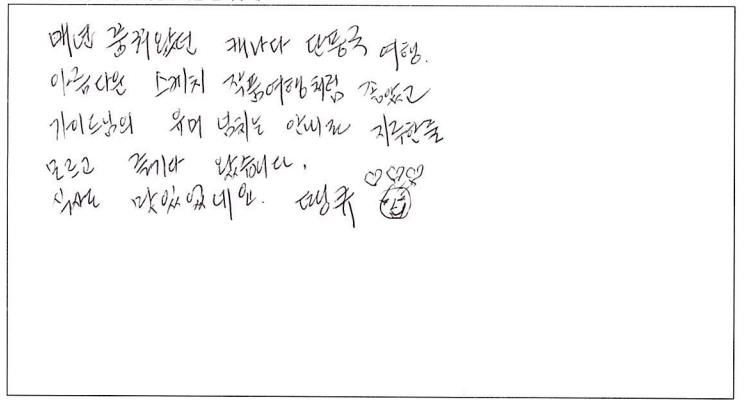 매년 꿈꿔왔던 캐나다 단풍국 여행.
아름다운 스케치 작품여행처럼 좋았고
가이드님의 유머 넘치는 안내로 지루한줄
모르고 즐기다 왔습니다.
식사도 맛있었네요. 땡큐